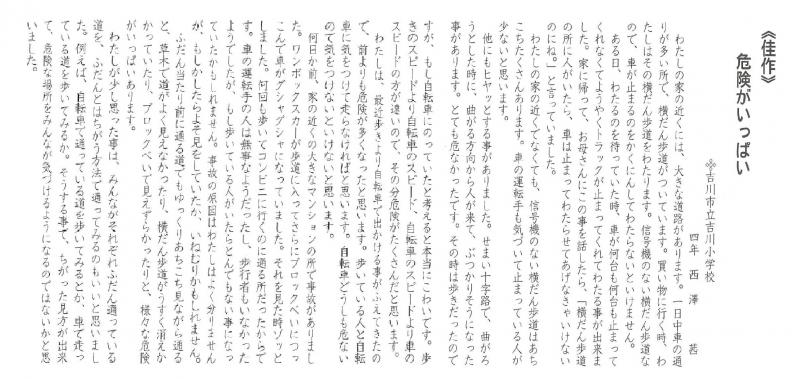 《佳作》
危険がいっぱい
※吉川市立吉川小学校
四年　西澤　茜
わたしの家の近くには、大きな道路があります。一日中車の通
りが多い所で、横だん歩道がついています。買い物に行く時、わ
たしはその横だん歩道をわたります。信号機のない横だん歩道な
ので、車が止まるのをかくにんしてわたらないといけません。
ある日、わたるのを待っていた時、車が何台も何台も止まって
くれなくてようやくトラックが止まってくれてわたる事が出来ま
した。家に帰って、お母さんにこの事を話したら、「横だん歩道
の所に人がいたら、車は止まってわたらせてあげなきゃいけない
のにね。」と言っていました。
わたしの家の近くでなくても、信号機のない横だん歩道はあち
こちたくさんあります。車の運転手も気づいて止まっている人が
少ないと思います。
他にもヒヤッとする事がありました。せまい十字路で、曲がろ
うとした時に、曲がる方向から人が来て、ぶつかりそうになった
事があります。とても危なかったです。その時は歩きだったので
すが、もし自転車にのっていたと考えると本当にこわいです。歩
きのスピードより自転車のスピード、自転車のスピードより車の
スピードの方が速いので、その分危険がたくさんだと思います。
わたしは、最近歩きより自転車で出かける事がふえてきたの
で、前よりも危険が多くなったと思います。歩いている人と自転
車に気をつけて走らなければと思います。自転車どうしも危ない
ので気をつけないといけないと思います。
何日か前、家の近くの大きなマンションの所で事故がありまし
た。ワンボックスカーが歩道に入ってさらにブロックべいにつっ
こんで車がグシャグシャになっていました。それを見た時ゾッと
しました。何回も歩いてコンビニに行くのに通る所だったからで
す。車の運転手の人は無事なようだったし、歩行者もいなかった
ようでしたが、もし歩いている人がいたらとんでもない事になっ
ていたかもしれません。事故の原因はわたしはよく分りません
が、もしかしたらよそ見をしていたか、いねむりかもしれません。
ふだん当たり前に通る道でもゆっくりあちこち見ながら通る
と、草木で道がよく見えなかったり、横だん歩道がうすく消えか
かっていたり、ブロックべいで見えずらかったりと、様々な危険
がいっぱいあります。
わたしが少し思った事は、みんながそれぞれふだん通っている
道を、ふだんとはちがう方法で通ってみるのもいいと思いまし
た。例えば、自転車で通っている道を歩いてみるとか、車で走っ
ている道を歩いてみるか。そうする事で、ちがった見方が出来
て、危険な場所をみんなが気づけるようになるのではないかと思
いました。